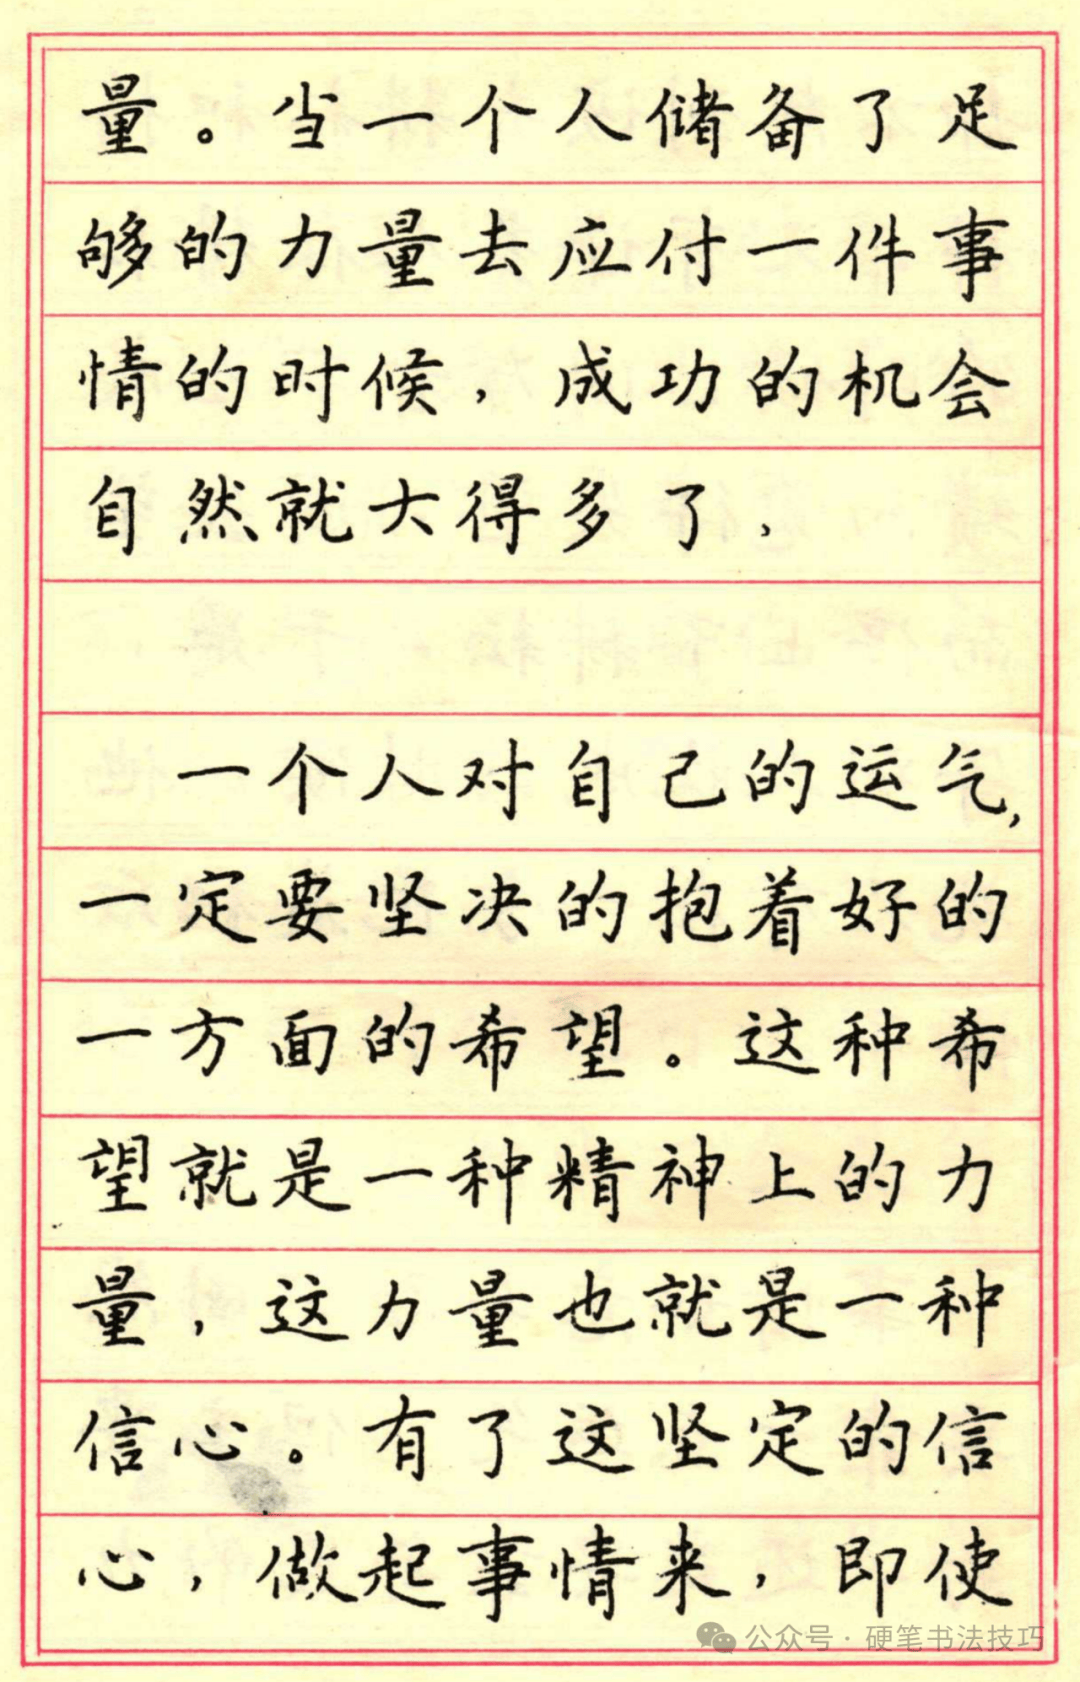 量。当一个人储备了足
够的力量去应付一件事
情的时候，成功的机会
自然就大得多了，
一个人对自己的运气，
一定要坚决的抱着好的
一方面的希望。这种希
望就是一种精神上的力
量，这力量也就是一种
信心。有了这坚定的信
心，做起事情来，即使
公众号·硬笔书法技巧